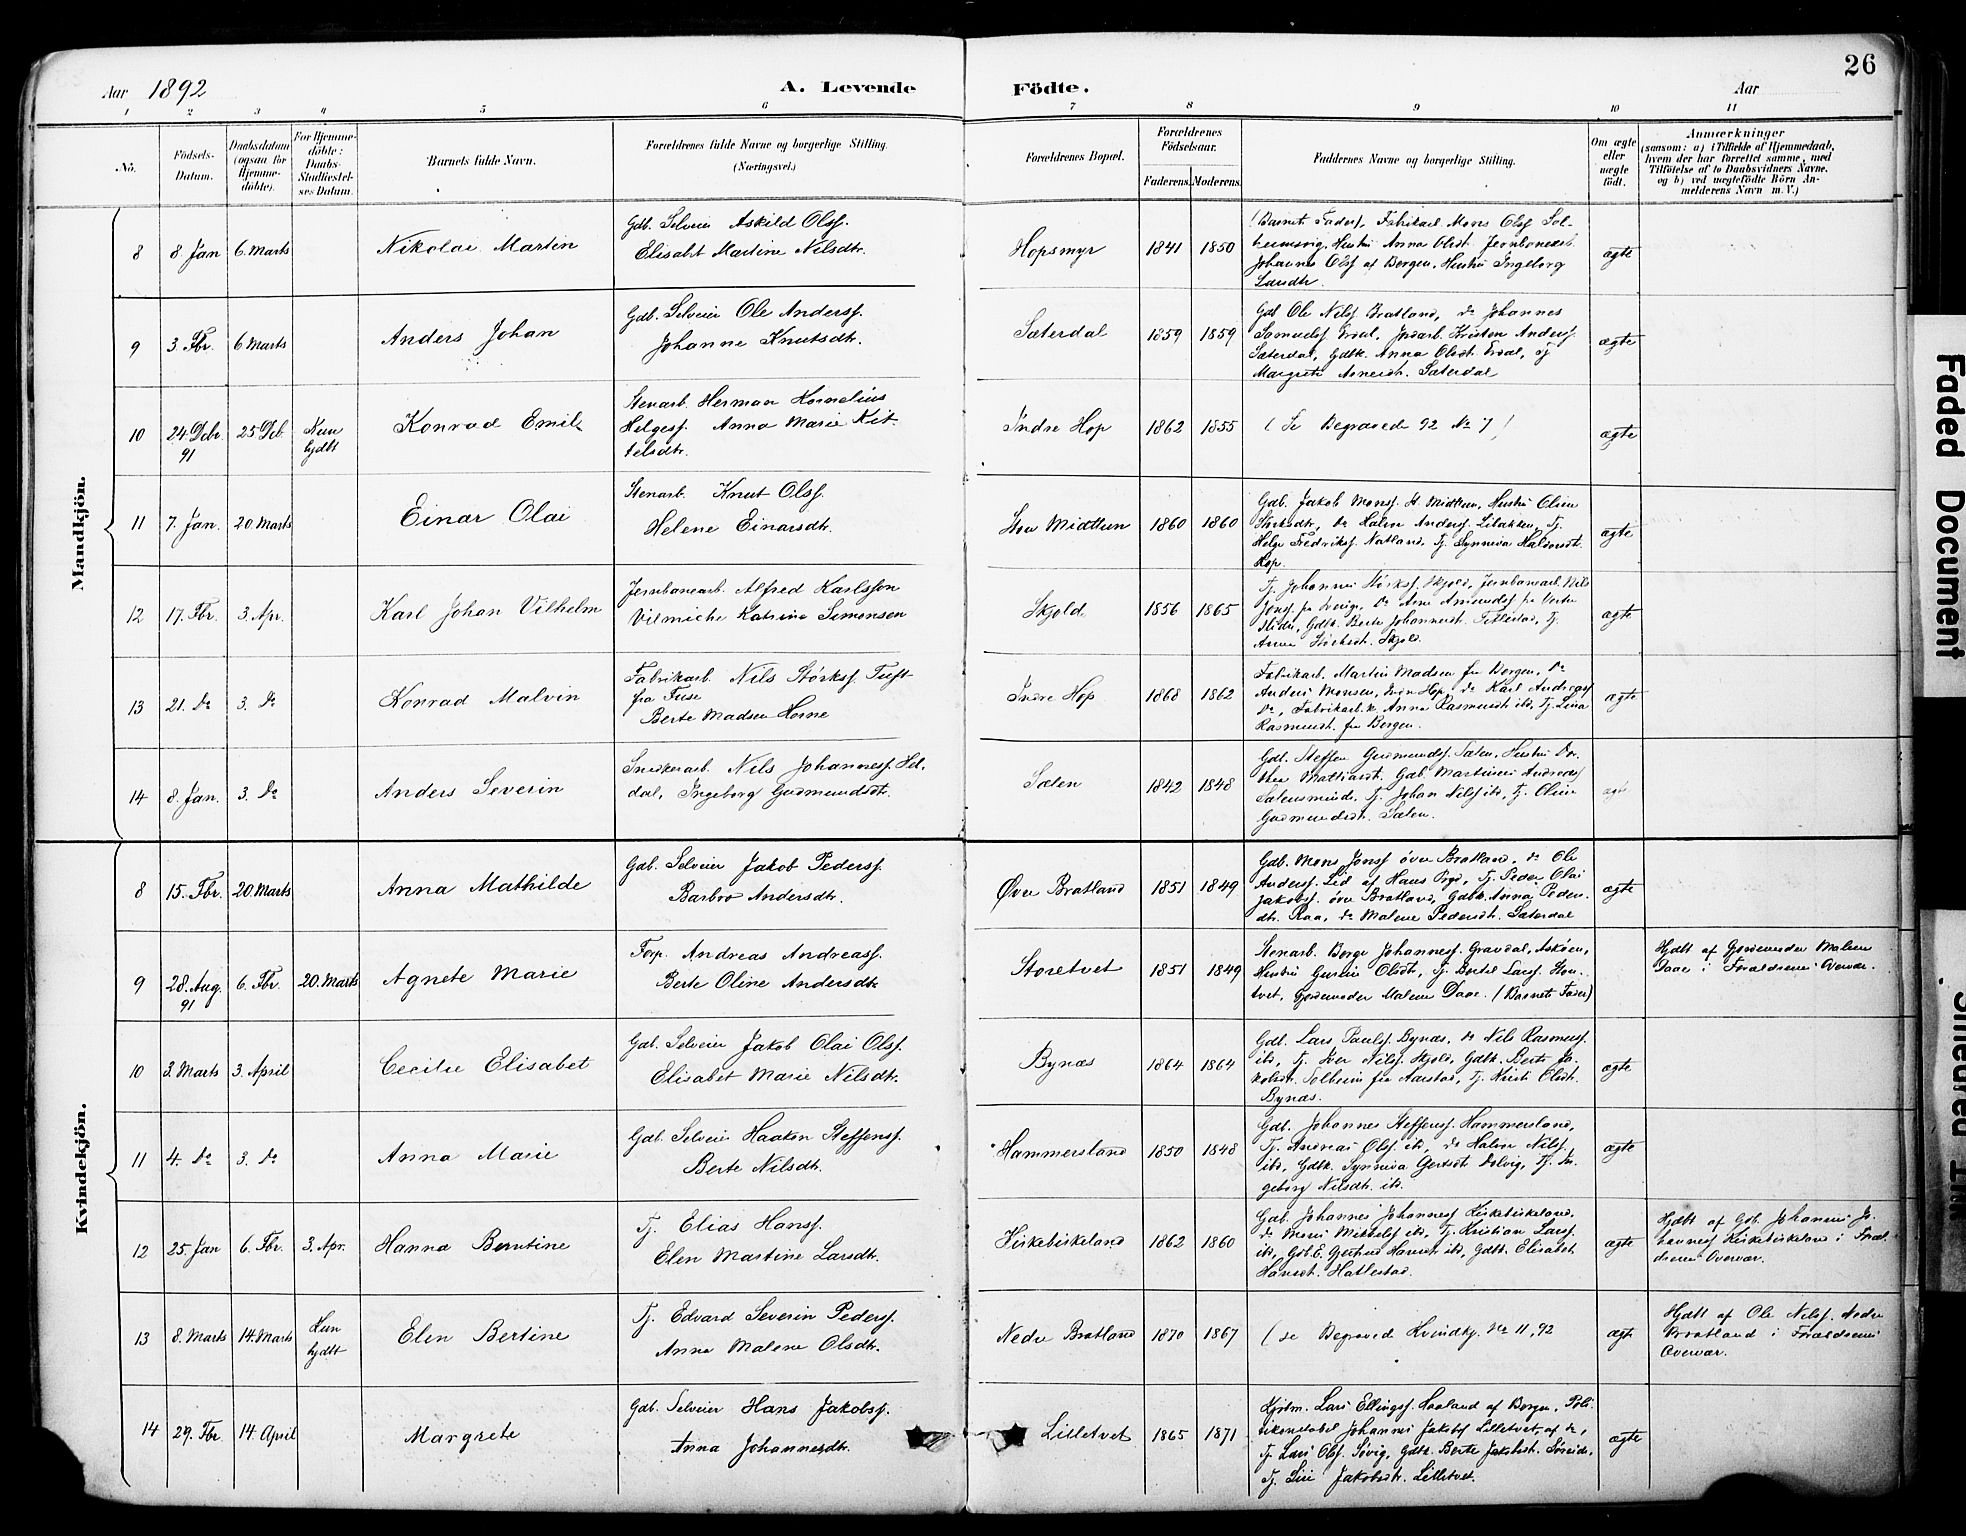 26
Aar 1892 A. Levende Födte. Aar
1 2 3 4 5 6 7 8 9 10 11
No.
Födsels-
Datum.
Daabsdatum
(ogsaa for
Hjemme-
döbte).
For Hjemme-
döbte:
Daabs-
Stadfæstel-
ses Datum.
Barnets fulde Navn.
Forældrenes fulde Navne og borgerlige Stilling.
(Næringsvei.)
Forældrenes Bopæl.
Forældrenes
Födselsaar.
Faderens. Moderens.
Faddernes Navne og borgerlige Stilling.
Om ægte
eller
uægte
födt.
Anmærkninger
(saasom: a) i Tilfælde af Hjemmedaab,
hvem der har forrettet samme, med
Tilföielse af to Daabsvidners Navne.
og b) ved uægtefödte Börn An-
melderens Navn m. V.)
Mandkjön.
8 8. Jan 6. Marts Nikolai Martin
Gdb. Selveier Askild Olsf.
Elisabt Martine Nilsdtr.
Hopsmyr 1841 1850
(Barnets Fader), Fabrikarb Mons Olsf Sol-
heimsvig, Hustru Anna Olsdt. Jernbanearb.
Johannes Olsf af Bergen, Hustru Ingeborg
Larsdtr.
ægte
9 3. Fbr. 6 Marts Anders Johan
Gdb. Selveier Ole Andersf.
Johanne Knutsdtr.
Sæterdal 1859 1859
Gdb Ole Nilsf Bratland, Do Johannes
Samuelsf Erdal, Jordarb. Kristen Andersf
Sæterdal, Gdbk. Anna Olsdt. Erdal, og
Margrete Arnesdt. Sæterdal
ægte
10 24. Debr. 25 Deb. Kun
91 hjdbt
Konrad Emil
Stenarb. Herman Kornelius
Helgesf. Anna Marie Kit-
telsdtr.
Indre Hop 1862 1855
(Se Begravede 92 No 7)
ægte
11 7. Jan. 20 Marts Einar Olai
Stenarb. Knut Olsf.
Helene Einarsdtr.
Store Midttun 1860 1860
Gdb. Jakob Monsf. St. Midttun, Hustru Oline
Størksdtr, Do Halvor Andersf. Lilakken, Tj.
Helge Fredriksf. Natland, Tj. Synneva Haldorsdt.
Hop.
ægte
12 17. Fbr. 3. Apr. Karl Johan Vilhelm
Jernbanearb. Alfred Karlsson
Vilmiche Katrine Simonsen
Skjold 1856 1865
Tj. Johannes Størksf. Skjold, Jernbanearb. Nils
Jonsf. fra Sverige, Do Arne Amundsf fra Vestre
Slidre, Gdbk. Berte Johannesdt. Titlestad, Tj.
Anna Størksdt. Skjold.
ægte
13 21. Do 3. Do Konrad Malvin
Fabrikarb. Nils Størksf. Tuft
fra Fuse
Berte Madsen Horne
Indre Hop 1868 1862
Fabrikarb. Martin Madsen fra Bergen, Do
Anders Monsen, Indre Hop, Do Karl Andreasf
Do, Fabrikarb.k. Anna Rasmusdt ibd, Tj. Lina
Rasmusdt. fra Bergen.
ægte
14 8. Jan. 3. Do Anders Severin
Snedkerarb. Nils Johannesf. Hel-
dal, Ingeborg Gudmundsdt.
Sælen 1842 1848
Gdb. Steffen Gudmundsf. Sælen, Hustru Do-
thea Mathiasdt. Gdb. Martinus Andreasf
Sælensminde, Tj. Johan Nilsf ibd, Tj. Oline
Gudmundsdt. Sælen.
ægte
Kvindekjön.
8 15. Fbr. 20 Marts Anna Mathilde
Gdb. Selveier Jakob Pedersf.
Barbro Andersdtr.
Øvre Bratland 1851 1849
Gdb. Mons Jonsf øvre Bratland, Do Ole
Andersf. Lid af Haus Prgd, Tj. Peder Olai
Jakobsf. øvre Bratland, Gdbk. Anna Peders-
dtr. Raa, Do Malene Pedersdt. Sæterdal
ægte
9 28. Aug. 6. Fbr. 20. Marts Agnete Marie
91
Forp. Andreas Andreasf.
Berte Oline Andersdtr
Storetvet 1851 1849
Stenarb. Børge Johannesf. Gravdal, Askøen,
Hustru Gurine Olsdt, Tj. Bertel Larsf. Stor-
tvet, Gjordemoder Malene Daae. (Barnets Fader)
Hjdbt af Gjordemoder Malene
Daae i Forældrenes Overvær.
10 3. Marts 3. April Cecilie Elisabet
Gdb. Selveier Jakob Olai Olsf.
Elisabet Marie Nilsdtr.
Bynæs 1864 1864
Gdb. Lars Paulsf. Bynæs, Do Nils Rasmusf.
ibd, Tj. Iver Nilsf. Skjold, Gdbk. Berte Ja-
kobsdt. Solheim fra Aarstad, Tj. Kirsti Olsdt.
Bynæs.
ægte
11 4. Do 3. Do Anna Marie
Gdb. Selveier Haakon Steffensf.
Berte Nilsdtr.
Hammersland 1850 1848
Gdb. Johannes Steffensf. Hammersland,
Tj. Andreas Olsf ibd, Do Halvor Nilsf.
ibd, Gdbk. Synneva Gertsdt Dolvig, Tj. In-
geborg Nilsdtr. ibd.
ægte
12 25. Jan 6. Fbr. 3. Apr. Hanna Berntine
Tj. Elias Hansf.
Elen Martine Larsdtr.
Kirkebirkeland 1862 1860
Gdb. Johannes Johannesf Kirkebirkeland,
Do Mons Mikkelsf ibd, Tj. Kristian Larsf.
ibd, Gdb.E. Gertrud Hansdt ibd, Gdbk. Elisabet
Hansdt. Hatlestad.
ægte
Hjdbt af Gdb. Johannes Jo-
hannesf Kirkebirkeland i Foræl-
drenes Overvær.
13 8. Marts 14. Marts Kun
hjdbt
Elen Bertine
Tj. Edvard Severin Pedersf.
Anna Malene Olsdtr.
Nedre Bratland 1870 1867
(se Begravede Kvindkj. No 11, 92
ægte
Hjdbt af Ole Nilsf. Nedre
Bratland i Forældrenes
Overvær.
14 29. Fbr. 14. April Margrete
Gdb. Selveier Hans Jakobsf.
Anna Johannesdtr.
Lilletvet 1865 1871
Kjøbm. Lars Ellingsf. Haaland af Bergen, Poli-
tikonstabel Johannes Jakobsf Lilletvet, af Do,
Tj. Lars Olsf. Søvig, Gdbk. Berte Jakobsdt. Søreide,
Tj. Siri Jakobsdtr. Lilletvet.
ægte
Faded Document
Smeared Ink